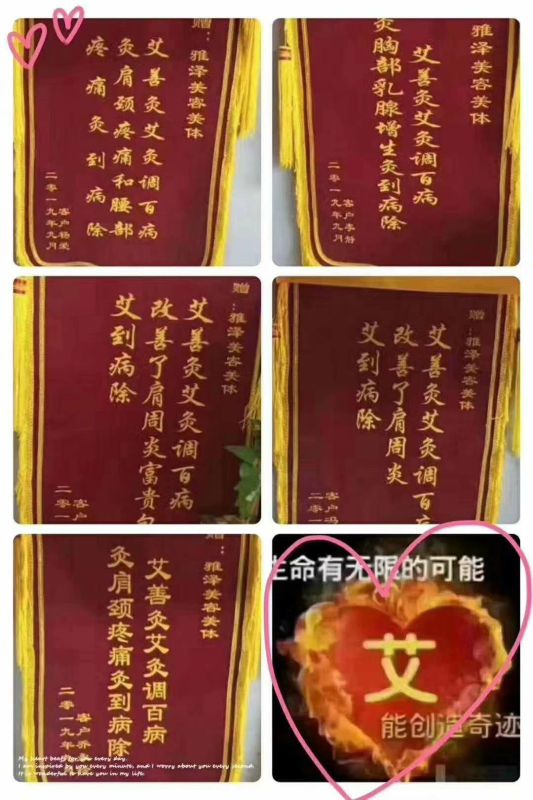 赠：雅泽美容美体
艾善灸艾灸调百病
灸肩颈疼痛和腰部
疼痛灸到病除
客户杨爱
二零一九年九月
雅泽美容美体
艾善灸艾灸调百病
灸胸部乳腺增生灸到病除
客户李静
二零一九年九月
赠：雅泽美容美体
艾善灸艾灸调百病
改善了肩周炎富贵包
艾到病除
客户
二零一
赠：雅泽美容美体
艾善灸艾灸调百病
改善了肩周炎
艾到病除
客户冯
二零一
赠：雅泽美容美体
艾善灸艾灸调百病
灸肩颈疼痛灸到病除
客户乔
二零一九年
生命有无限的可能
艾
能创造奇迹
My heart beats for you every day.
I am inspired by you every minute, and I worry about you every second.
It is wonderful to have you in my life.